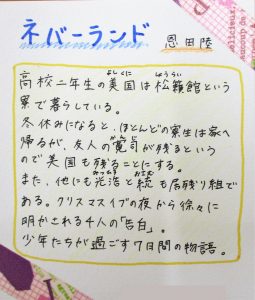 ネバーランド
恩田陸
よしくに しょうらい
高校二年生の美国は松籟館という
寮で暮らしている。
冬休みになると、ほとんどの寮生は家へ
帰るが、友人の寛司が残るという
ので美国も残ることにする。
みつひろ おさむ
また、他にも光浩と統も居残り組で
ある。クリスマスイブの夜から徐々に
明かされる4人の「告白」。
少年たちが過ごす7日間の物語。